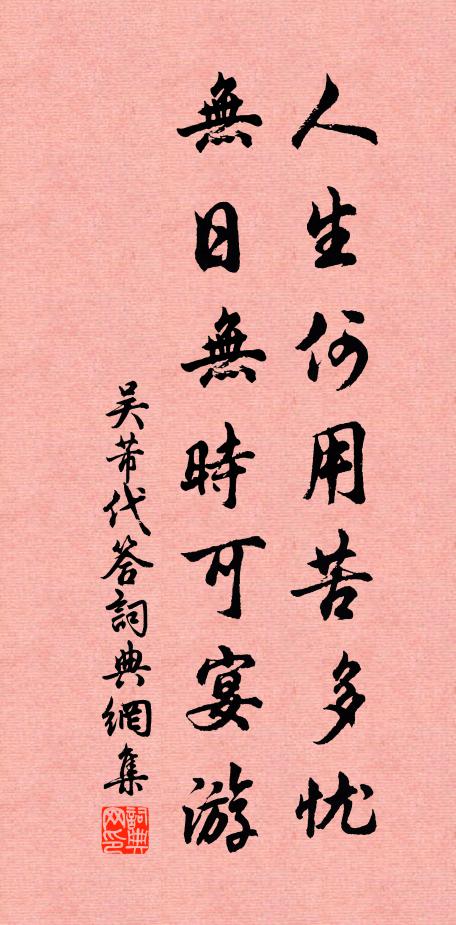 人生何用苦多忧
無日無時可宴游
吴芾代答詞典網集
詞典网印